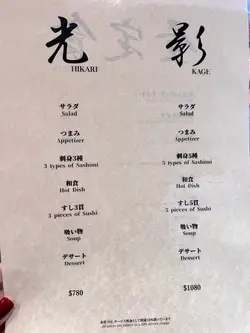 光
HIKARI
サラダ
Salad
つまみ
Appetizer
刺身3種
3 types of Sashimi
和食
Hot Dish
すし3貫
3 pieces of Sushi
吸い物
Soup
デザート
Dessert
$780
影
KAGE
サラダ
Salad
つまみ
Appetizer
刺身5種
5 types of Sashimi
和食
Hot Dish
すし5貫
5 pieces of Sushi
吸い物
Soup
デザート
Dessert
$1080
All prices are subject to a 10% service charge